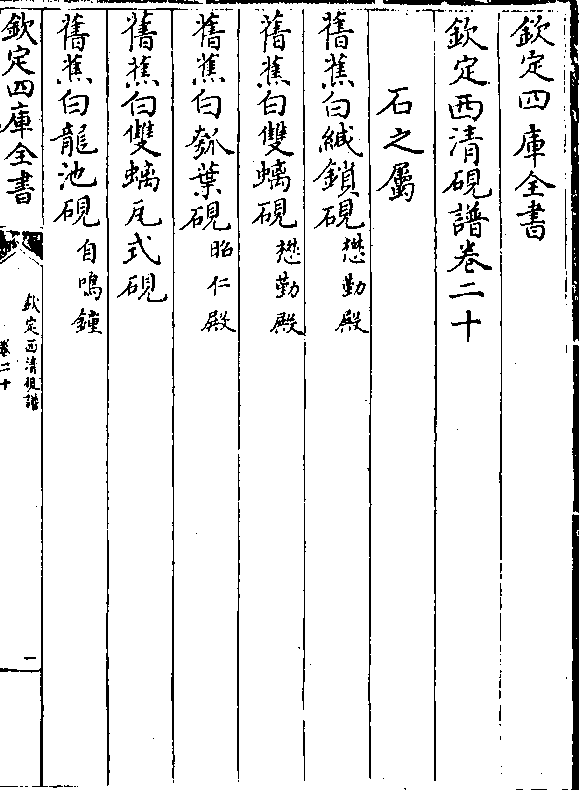 欽定四庫全書
欽定西清硯譜卷二十
石之屬
舊蕉白緘鎖硯懋勤殿
舊蕉白雙螭硯懋勤殿
舊蕉白瓠葉硯昭仁殿
舊蕉白雙螭瓦式硯
舊蕉白龍池硯自鳴鐘
欽定四庫全書
欽定西清硯譜
卷二十
一